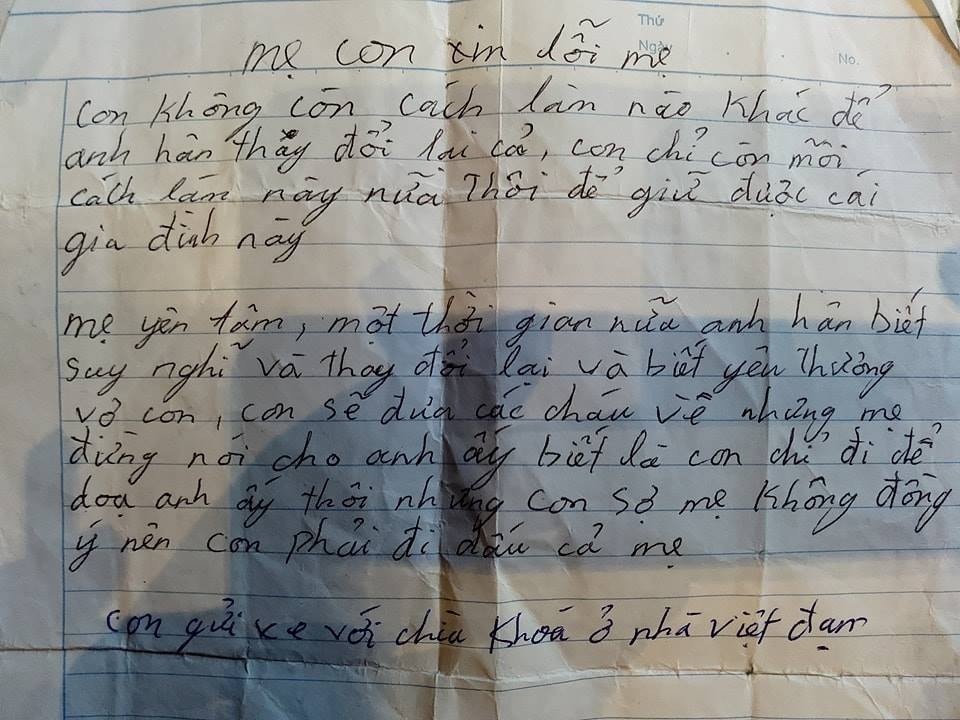 Thứ
Ngày
No.
mẹ con xin lỗi mẹ
con không còn cách làn nào khác để
anh hân thäy đổi lại cả, con chỉ còn mỗi
cách làn này nữa thôi để giữ được cái
gia đình này
mẹ yên tâm, một thời gian nữa anh hân biết
suy nghĩ và thay đổi lại và biết yêu thương
vợ con, con sẽ đưa các cháu về nhưng mẹ
đừng nói cho anh ấy biết là con chỉ đi để
doạ anh ấy thôi nhưng con sợ mẹ không đồng
ý nên con phải đi dấu cả mẹ
con gửi xe với chìa khoá ở nhà việt đạm